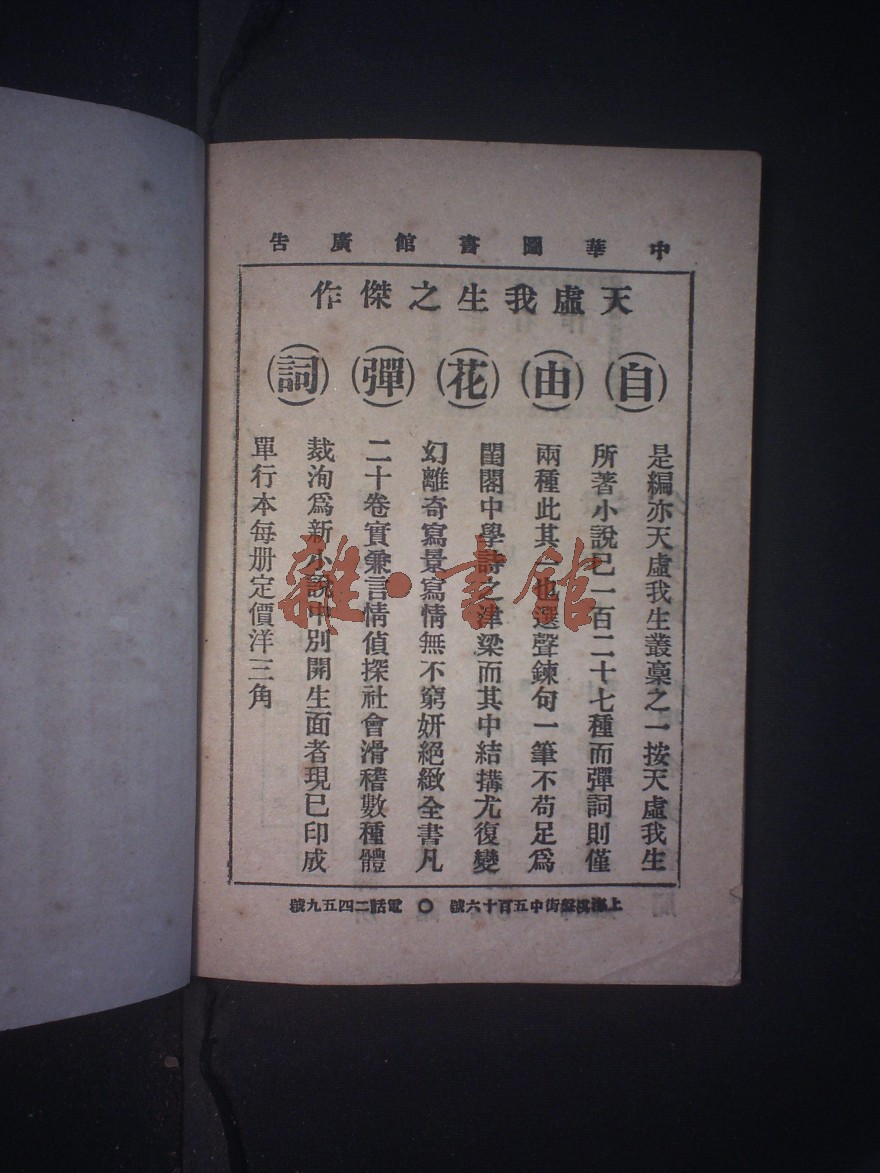 中華圖書館廣告
天虛我生之傑作
(自)(由)(花)(彈)(詞)
是編亦天虛我生叢稾之一按天虛我生
所著小說已一百二十七種而彈詞則僅
兩種此其一也選聲鍊句一筆不苟足爲
閨閣中學詩之津梁而其中結搆尤復變
幻離奇寫景寫情無不窮妍絕緻全書凡
二十卷實兼言情偵探社會滑稽數種體
裁洵爲新小說中別開生面者現已印成
單行本每册定價洋三角
上海棋盤街中五百十六號 ○ 電話二四五九號
雜·書館